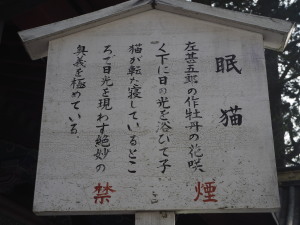 眠猫
左甚五郎の作牡丹の花咲
く下に日の光を浴びて子
猫が転た寝しているとこ
ろで日光を現わす絶妙の
奥義を極めている
禁煙